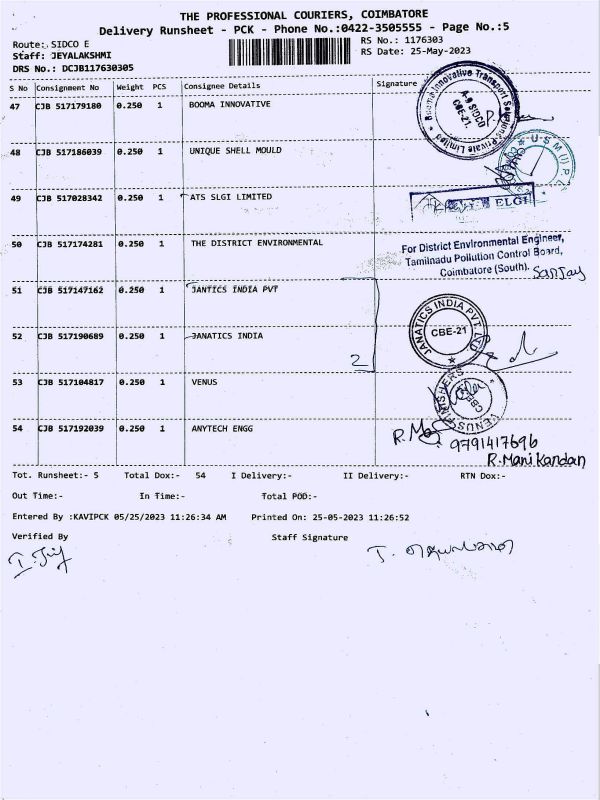 THE PROFESSIONAL COURIERS, COIMBATORE
Delivery Runsheet - PCK - Phone No.:0422-3505555 - Page No.:5
Route: SIDCO E RS No.: 1176303
Staff: JEYALAKSHMI RS Date: 25-May-2023
DRS No.: DCJB117630305
S No Consignment No Weight PCS Consignee Details Signature
47 CJB 517179180 0.250 1 BOOMA INNOVATIVE
Booma Innovative Transport Solutions Private Limited
SIDCO
CBE-21.
48 CJB 517186039 0.250 1 UNIQUE SHELL MOULD
U S M (I) P
49 CJB 517028342 0.250 1 ATS SLGI LIMITED
ELGI
50 CJB 517174281 0.250 1 THE DISTRICT ENVIRONMENTAL
For District Environmental Engineer,
Tamilnadu Pollution Control Board,
Coimbatore (South).
Sanjay
51 CJB 517147162 0.250 1 JANTICS INDIA PVT
JANATICS INDIA PVT LTD
CBE-21
52 CJB 517190689 0.250 1 JANATICS INDIA
2
53 CJB 517104817 0.250 1 VENUS
VENUS FINISHERS
54 CJB 517192039 0.250 1 ANYTECH ENGG
9791417696
R.Manikandan
Tot. Runsheet:- 5 Total Dox:- 54 I Delivery:- II Delivery:- RTN Dox:-
Out Time:- In Time:- Total POD:-
Entered By :KAVIPCK 05/25/2023 11:26:34 AM Printed On: 25-05-2023 11:26:52
Verified By Staff Signature